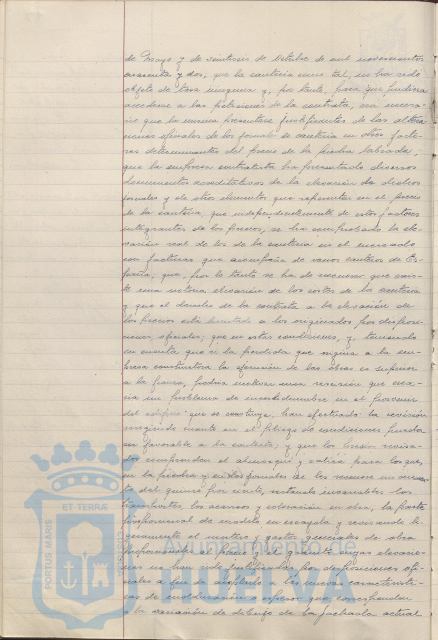 de Mayo y de veintiseis de Octubre de mil novecientos
cuarenta y dos, que la cantería como tal, no ha sido
objeto de tasa ninguna y, por tanto, para que pudiera
accederse a las peticiones de la contrata, era necesa-
rio que la misma presentara justificantes de las altera-
ciones oficiales de los jornales de cantería u otros facto-
res determinantes del precio de la piedra labrada;
que la empresa contratista ha presentado diversos
documentos acreditativos de la elevación de dichos
jornales y de otros elementos que repercuten en el precio
de la cantería, que independientemente de estos factores
integrantes de los precios, se ha comprobado la ele-
vación real de los de la cantería en el mercado
con facturas que acompaña de varias canteras de Es-
paña; que, por lo tanto se ha de reconocer que exis-
te una notoria elevación de los costos de la cantería
y que el derecho de la contrata a la elevación de
los precios está limitado a los originados por disposi-
ciones oficiales; que en estas condiciones, y teniendo
en cuenta que si la pérdida que origina a la em-
presa constructora la ejecución de las obras es superior
a la fianza, podría motivar una rescisión que crea-
ría un problema de incertidumbre en el porvenir
del edificio que se construye, han efectuado la revisión
en el pliego de condiciones pueda
ser favorable a la contrata; y que los precios revisa-
dos comprenden el
en la piedra y en los jornales de los mismos un aumen-
to del quince por ciento, estando invariables los
transportes, los acarreos y colocación en obra, la parte
proporcional de modelo en escayola y
el medios y gastos generales de obra
AYUNTAMIENTO DE
PORTUS MARIS
ET TERRÆ
por disposiciones ofi-
ciales a fin de las nuevas característi-
cas de que corresponden
a la variación de dibujo de la fachada actual